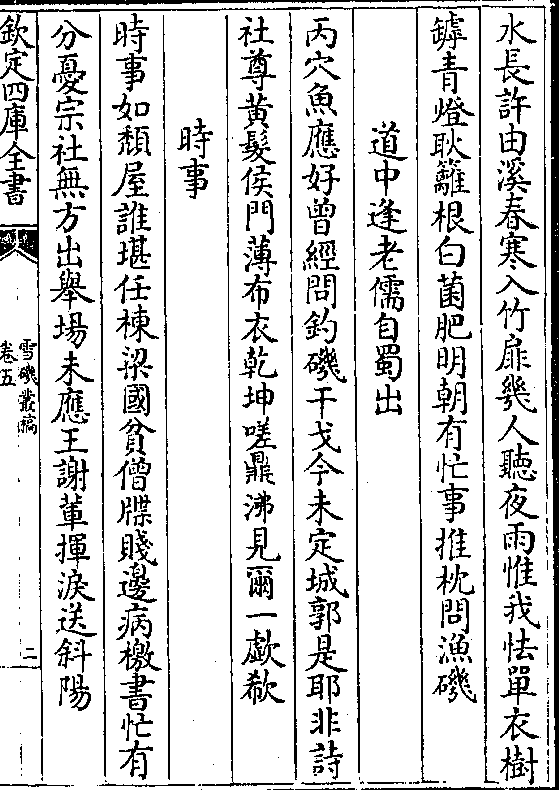 水長許由溪春寒入竹扉幾人聽夜雨惟我怯單衣樹
罅青燈耿籬根白菌肥明朝有忙事推枕問漁磯
道中逢老儒自蜀出
丙穴魚應好曾經問釣磯干戈今未定城郭是耶非詩
社尊黃髮侯門薄布衣乾坤嗟鼎沸見爾一歔欷
時事
時事如頽屋誰堪任棟梁國貧僧牒賤邊病檄書忙有
分憂宗社無方出舉場未應王謝軰揮淚送斜陽
欽定四庫全書
雪磯叢稿
卷五
二